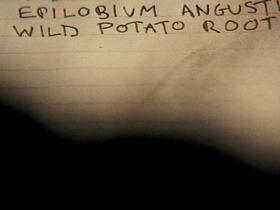 EPILOBIUM ANGUSTI
WILD POTATO ROOT